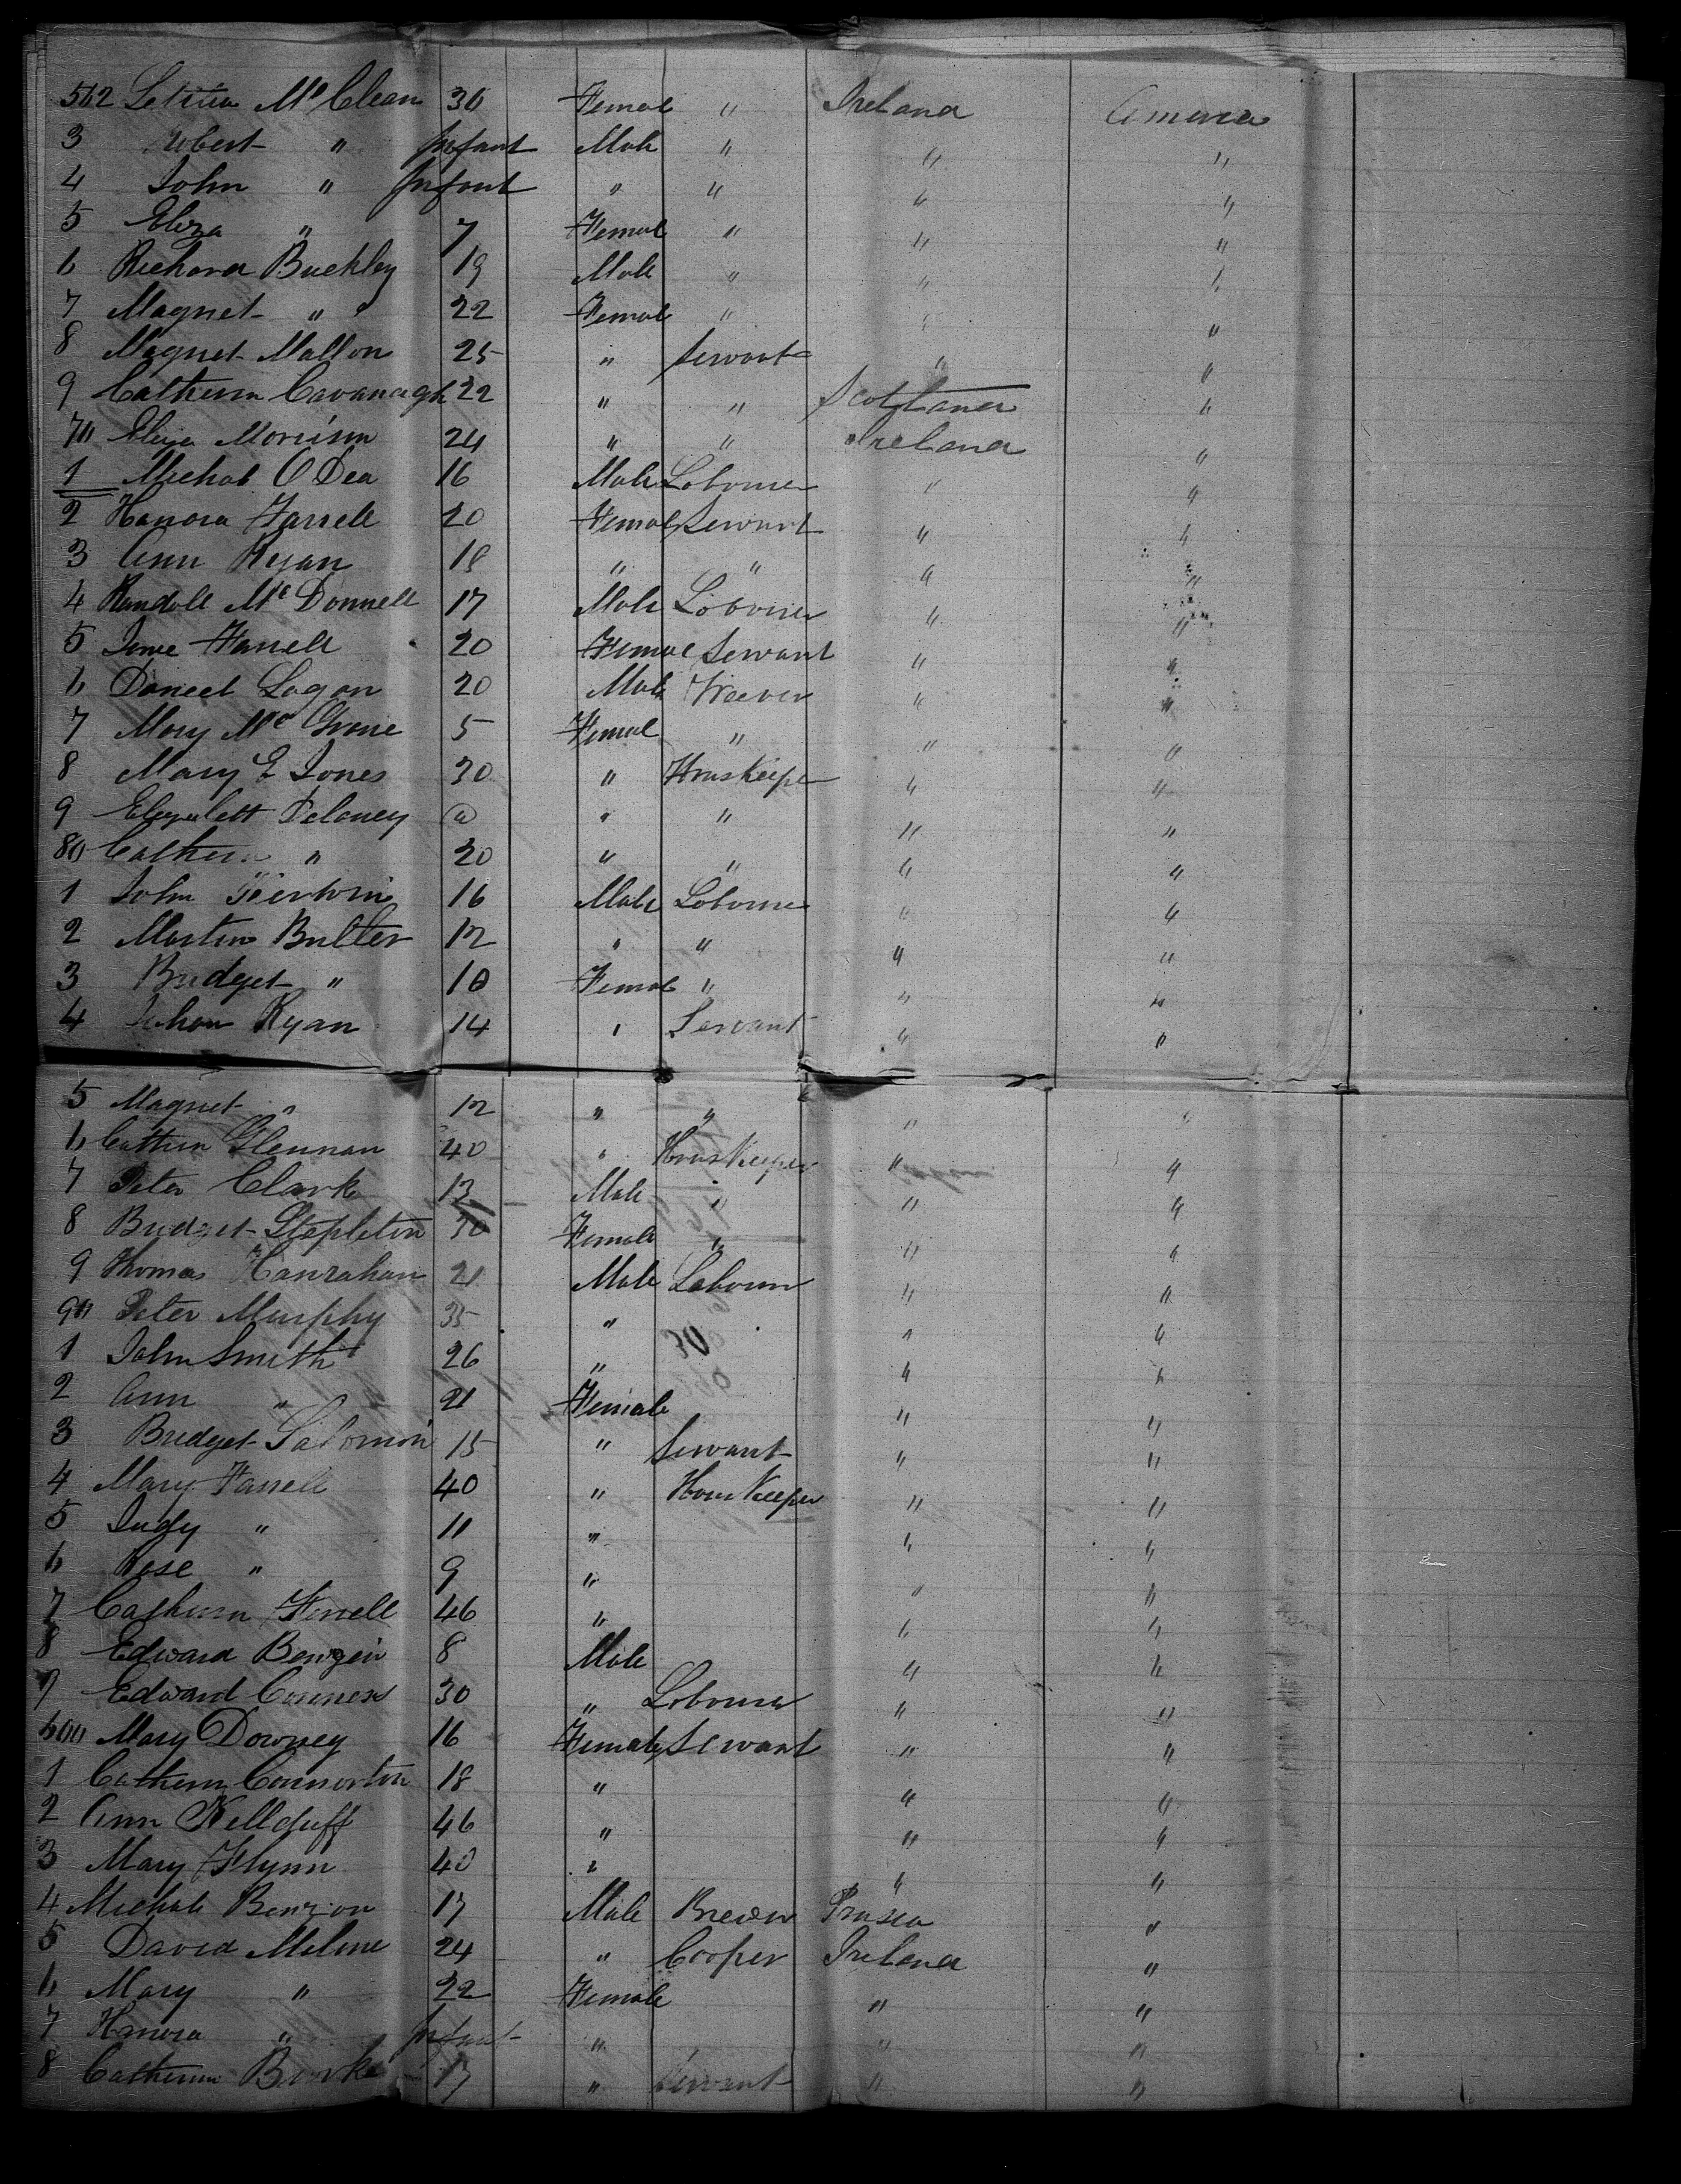 562 Letitia McClean 36 Femal " Ireland America
3 Robert " Infant Male " " "
4 John " Infant " " " "
5 Eliza " 7 Femal " " "
6 Richard Buckley 19 Male " " "
7 Magret " 22 Femal " " "
8 Magret Mallon 25 " Servant " "
9 Cathern Cavanagh 22 " " Scotland "
70 Eliza Morrison 24 " " Ireland "
1 Michal O Dea 16 Male Labourer " "
2 Hanora Farrell 20 Femal Servant " "
3 Ann Ryan 18 " " " "
4 Randall McDonnell 17 Male Labourer " "
5 Jane Farrell 20 Femal Servant " "
6 Daniel Logan 20 Male Weever " "
7 Mary Mc 5 Femal " " "
8 Mary E Jones 30 " HousKeeper " "
9 Delaney " " " "
80 Cathern " 20 " " " "
1 John 16 Male Labourer " "
2 Martin Butler 12 " " " "
3 Bridget " 10 Femal " " "
4 Ryan 14 " Servant " "
5 Magret " 12 " " " "
6 Cathern Glennan 40 " HousKeeper " "
7 Peter Clark 13 Male " " "
8 Bridget Stapleton 30 Female " " "
9 Thomas Hanrahan 21 Male Labourer " "
90 Peter Murphy 35 " " "
1 John Smith 26 " " "
2 Ann " 21 Female " "
3 Bridget Salomon 15 " Servant " "
4 Mary Farrell 40 " HousKeeper " "
5 Judy " 11 " " "
6 Rose " 9 " " "
7 Cathern Ferrell 46 " " "
8 Edward 8 Male " "
9 Edward Conners 30 " Labourer " "
600 Mary Downey 16 Female Servant " "
1 Cathern Connorton 18 " " "
2 Ann Kellduff 46 " " "
3 Mary Flynn 40 " " "
4 Michale Benzon 17 Male Brewer Prusia "
5 David Malone 24 " Cooper Ireland "
6 Mary " 22 Female " "
7 Hanora " Infant " " "
8 Cathern Burke 17 " Servant " "